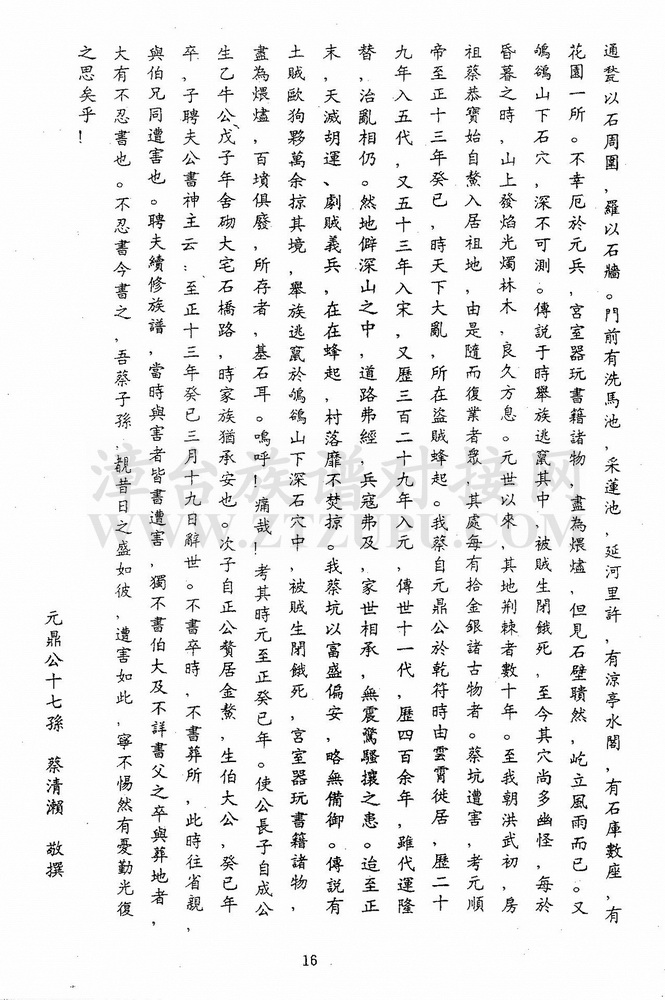 通甃以石周圍，羅以石牆。門前有洗馬池，采蓮池，延河里許，有涼亭水閣，有石庫數座，有
花園一所。不幸厄於元兵，宮室器玩書籍諸物，盡為煨燼，但見石壁聵然，屹立風雨而已。又
鵮鵒山下石穴，深不可測。傳說于時舉族逃竄其中，被賊生閉餓死，至今其穴尚多幽怪，每於
昏暮之時，山上發焰光燭林木，良久方息。元世以來，其地荆棘者數十年。至我朝洪武初，房
祖蔡恭寶始自鰲入居祖地，由是隨而復業者眾，其處每有拾金銀諸古物者。蔡坑遭害，考元順
帝至正十三年癸巳，時天下大亂，所在盜賊蜂起。我蔡自元鼎公於乾符時由雲霄徙居，歷二十
九年入五代，又五十三年入宋，又歷三百二十九年入元，傳世十一代，歷四百余年，雖代運隆
替，治亂相仍。然地僻深山之中，道路弗經，兵寇弗及，家世相承，無震驚騷攘之患。迨至正
末，天滅胡運、劇賊義兵，在在蜂起，村落靡不焚掠。我蔡坑以富盛偏安，略無備御。傳説有
土賊歐狗夥萬余掠其境，舉族逃竄於鵮鵒山下深石穴中，被賊生閉餓死，宮室器玩書籍諸物，
盡為煨燼，百墳俱廢，所存者，基石耳。嗚呼！痛哉！考其時元至正癸巳年。使公長子自成公
生乙牛公，戊子年舍砌大宅石橋路，時家族猶承安也。次子自正公贅居金鰲，生伯大公，癸巳年
卒，子聘夫公書神主云：至正十三年癸巳三月十九日辭世。不書卒時，不書葬所，此時往省親，
與伯兄同遭害也。聘夫續修族譜，當時與害者皆書遭害，獨不書伯大及不詳書父之卒與葬地者，
大有不忍書也。不忍書今書之，吾蔡子孫，覩昔日之盛如彼，遭害如此，寧不惕然有憂勤光復
之思矣乎！
元鼎公十七孫 蔡清瀨 敬撰
漳台族谱对接网
WWW.ZTZUPU.COM
16